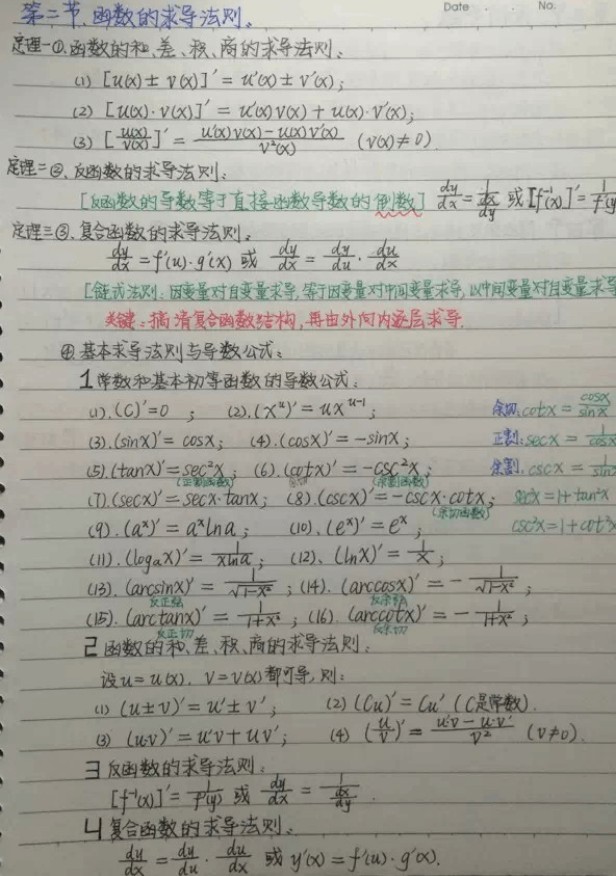 Date . . No.
第二节、函数的求导法则。
定理一①.函数的和、差、积、商的求导法则。
(1) [u(x)± v(x)]′ = u′(x) ± v′(x);
(2) [u(x)·v(x)]′ = u′(x)v(x) + u(x)·v′(x);
(3) [u(x)/v(x)]′ = (u′(x)v(x)−u(x)v′(x))/v²(x) (v(x)≠0).
定理二②、反函数的求导法则:
[反函数的导数等于直接函数导数的倒数] dy/dx = 1/(dx/dy) 或 [f⁻¹(x)]′ = 1/f′(y)
定理三③.复合函数的求导法则。
dy/dx = f′(u)·g′(x) 或 dy/dx = dy/du · du/dx
[链式法则:因变量对自变量求导,等于因变量对中间变量求导,以中间变量对自变量求导
关键:搞清复合函数结构,再由外向内逐层求导.
④.基本求导法则与导数公式:
1 常数和基本初等函数的导数公式:
(1).(C)′=0 ; (2).(xᵘ)′ = uxᵘ⁻¹; 余切.cotx = cosx/sinx
(3).(sinx)′ = cosx; (4).(cosx)′ = −sinx; 正割:secx = 1/cosx
(5).(tanx)′ = sec²x; (6).(cotx)′ = −csc²x; 余割.cscx = 1/sinx
(正割函数) 余切 (余割函数)
(7).(secx)′ = secx·tanx; (8).(cscx)′ = −cscx·cotx; sec²x = 1+tan²x
(余切函数)
(9).(aˣ)′ = aˣlna; (10)、(eˣ)′ = eˣ; csc²x = 1+cot²x
(11).(logₐx)′ = 1/(xlna); (12)、(lnx)′ = 1/x;
(13).(arcsinx)′ = 1/√(1−x²) ; (14).(arccosx)′ = − 1/√(1−x²);
反正弦 反余弦
(15).(arctanx)′ = 1/(1+x²); (16).(arccotx)′ = − 1/(1+x²);
反正切 反余切
2 函数的和、差、积、商的求导法则:
设u = u(x). v = v(x)都可导,则:
(1) (u±v)′ = u′± v′; (2) (Cu)′ = Cu′ (C是常数).
(3) (u·v)′ = u′v + uv′; (4) (u/v)′ = (u′v − u·v′)/v² (v≠0).
3 反函数的求导法则:
[f⁻¹(x)]′ = 1/f′(y) 或 dy/dx = 1/(dx/dy).
4 复合函数的求导法则。
dy/dx = dy/du · du/dx 或 y′(x) = f′(u)·g′(x).